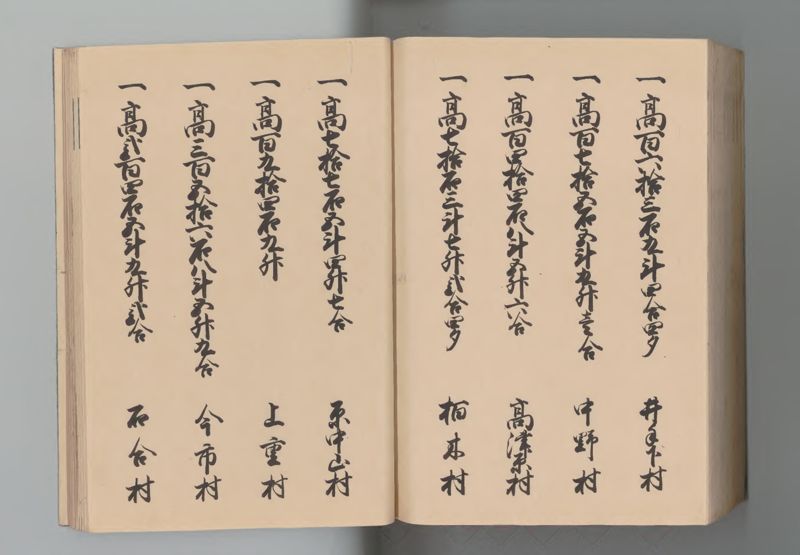 一 高百六拾三石九斗四合四夕 井手下村
一 高百七拾五石五斗九升壱合 中野村
一 高百四拾四石八斗五升六合 高津原村
一 高七拾石三斗七升弐合四夕 栢木村
一 高七拾七石五斗四升七合 原中山村
一 高百九拾四石九升 上重村
一 高三百五拾六石八斗五升九合 今市村
一 高弐百四石五斗九升弐合 石合村